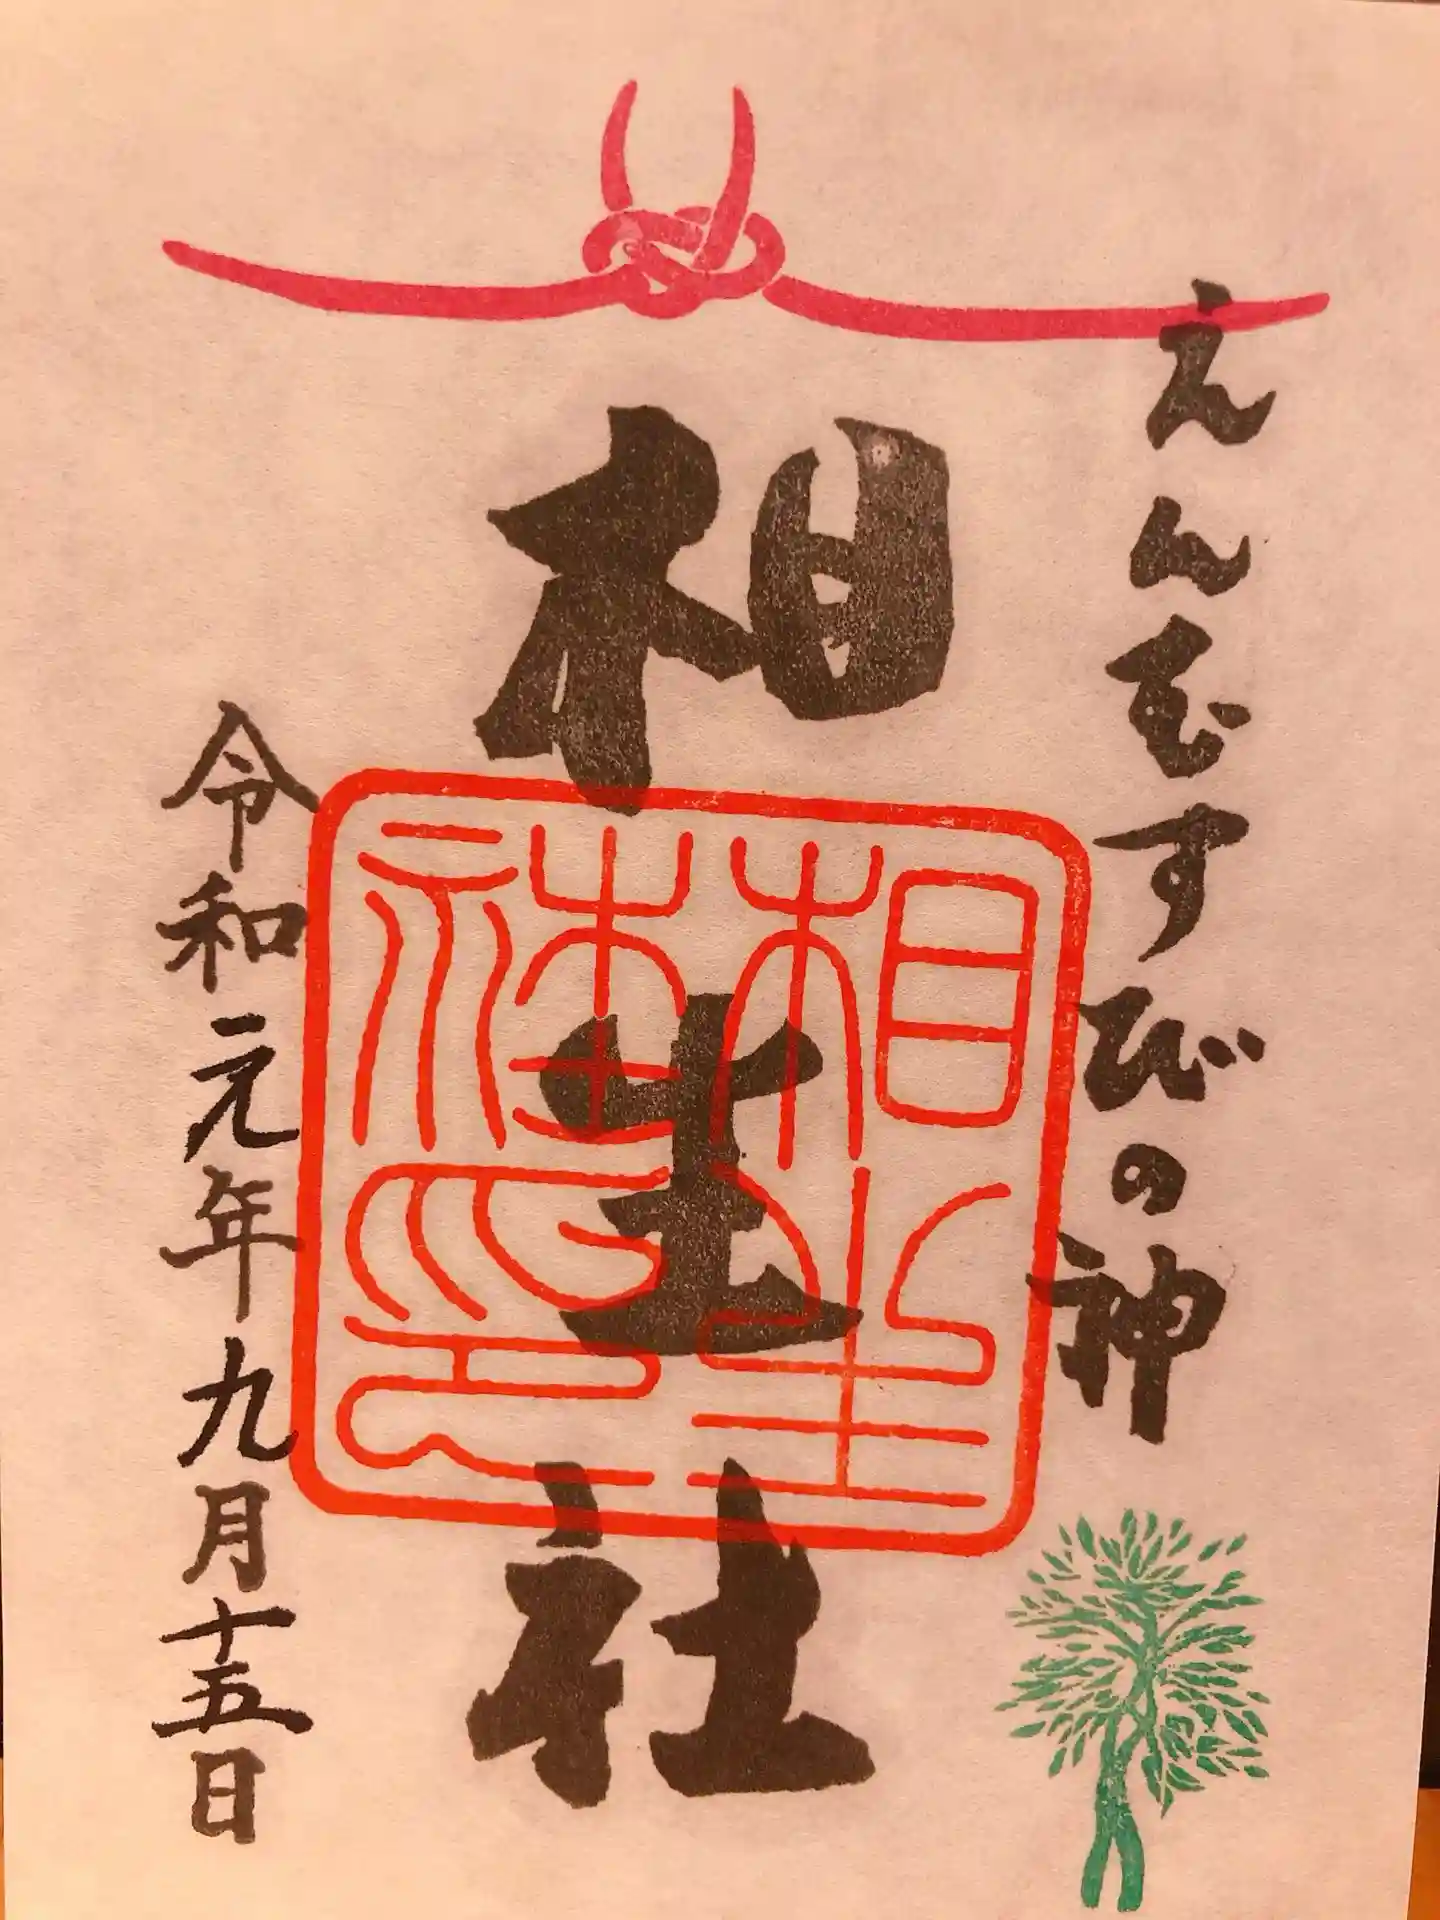 えんむすびの神
相生社
相生社之印
令和元年九月十五日